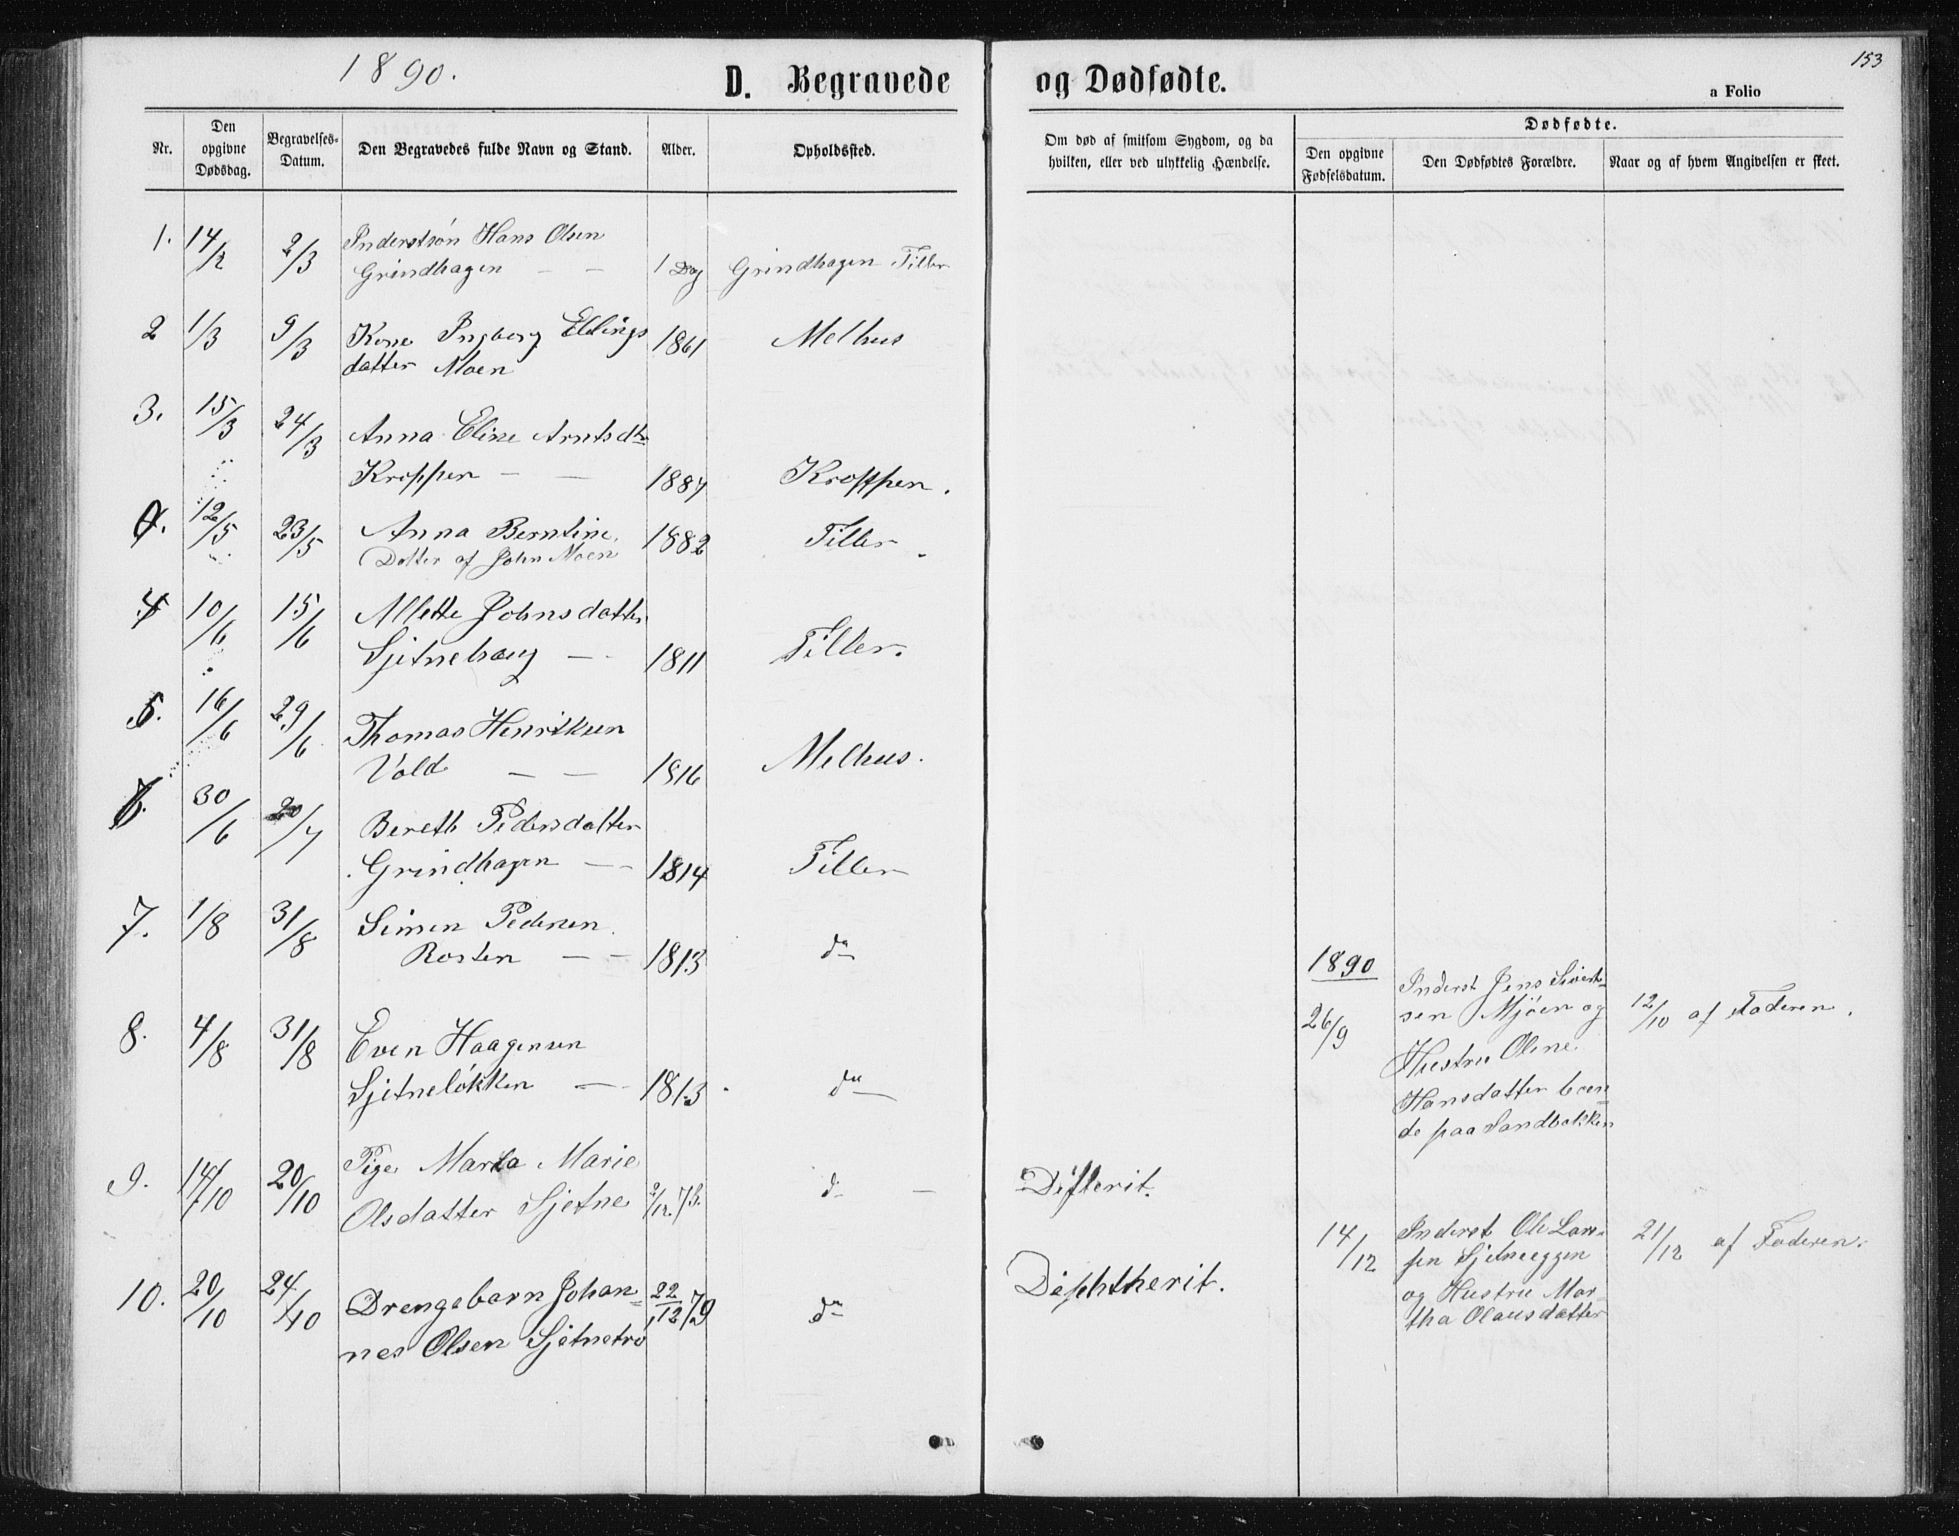 1890.
D. Begravede og Dødfødte.
153
a Folio
Nr.
Den opgivne Dødsdag.
Begravelses-Datum.
Den Begravedes fulde Navn og Stand.
Alder.
Opholdssted.
Om død af smitsom Sygdom, og da hvilken, eller ved ulykkelig Hændelse.
Dødfødte.
Den opgivne Fødselsdatum.
Den Dødfødtes Forældre.
Naar og af hvem Angivelsen er skeet.
1. 14/2 2/3 Inderstsön Hans Olsen
Grindhagen — — 1 Dag Grindhagen Tiller
2 1/3 9/3 Kone Ingborg Ellings
datter Moen 1861 Melhus
3. 15/3 24/3 Anna Eline Arntsdtr
Kroppen — — 1887 Kroppen.
12/5 23/5 Anna Berntine 1882 Tiller
Datter af John Moen
4 10/6 15/6 Allette Johnsdatter
Sjetnehaug — 1811 Tiller.
5. 16/6 29/6 Thomas Henriksen
Vold — — 1816 Melhus.
6. 30/6 20/7 Bereth Pedersdatter
Grindhagen — 1814 Tiller
7. 1/8 31/8 Simen Pedersen
Rosten — — 1813 do
8. 4/8 31/8 Even Haagensen
Sjetneløkken — 1813 do
9. 14/10 20/10 Pige Marta Marie
Olsdatter Sjetne 2/12.75. d— — Difterit.
10. 20/10 24/10 Drengebarn Johan=
nes Olsen Sjetnetrø 22/12 79 do Diphtherit.
1890
26/9 Inderst Jens Sivert=
sen Mjöen og
Hustru Oline
Hansdatter boen=
de paa Sandbakken
12/10 af Faderen.
14/12 Inderst Ole Lar=
sen Sjetneeggen
og Hustru Mar=
tha Olausdatter
21/12 af Faderen.